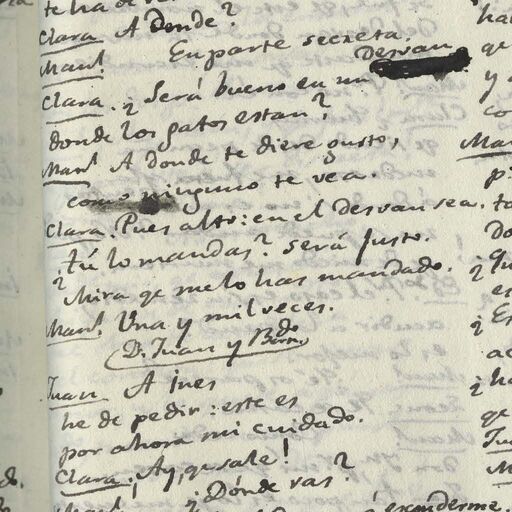 te ha de
Clara A donde?
Man.l En parte secreta.
Clara. ¿Será bueno en un Desvan
donde los gatos estan?
Man.l A donde te diere gusto,
como ninguno te vea.
Clara. Pues alto: en el desvan sea.
¿tú lo mandas? será justo.
Mira qe. me lo has mandado.
Man.l Una y mil veces.
D. Juan y Bern.do
Juan A Ines
he de pedir: este es
por ahora mi cuidado.
Clara. Ay, qe sale!
¿Dónde vas?